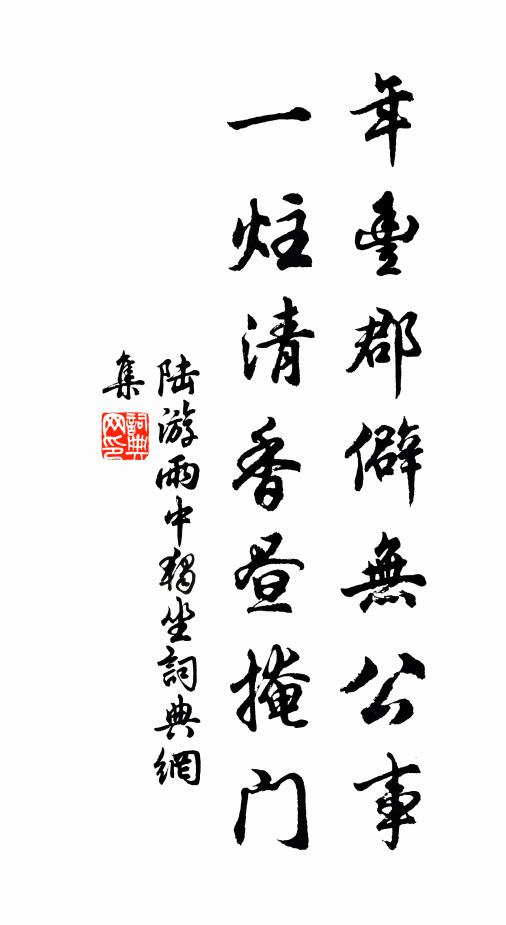 年豐郡僻無公事
一炷清香昼掩门
陆游雨中獨坐詞典網
集
詞典网印